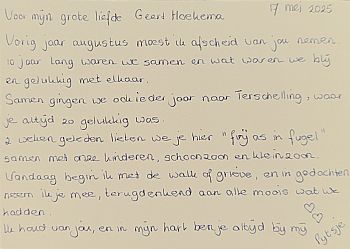 Voor mijn grote liefde Geert Hoekema 17 mei 2025
Vorig jaar augustus moest ik afscheid van jou nemen.
10 jaar lang waren we samen en wat waren we blij
en gelukkig met elkaar.
Samen gingen we ook ieder jaar naar Terschelling, waar
je altijd zo gelukkig was.
2 weken geleden lieten we je hier "frij as in fûgel"
samen met onze kinderen, schoonzoon en kleinzoon.
Vandaag begin ik met de walk of grieve, en in gedachten
neem ik je mee, terugdenkend aan alle moois wat we
hadden.
Ik houd van jou, en in mijn hart ben je altijd bij mij
Rytsje